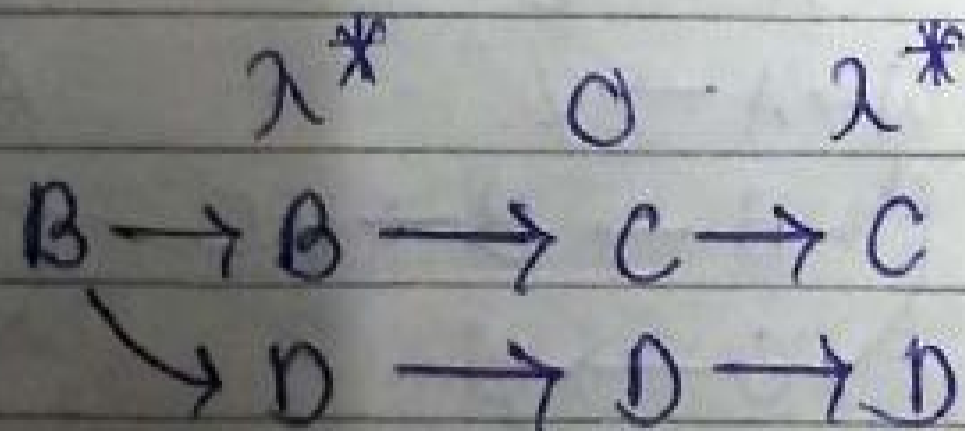 λ* 0 λ*
B → B → C → C
↘ D → D → D